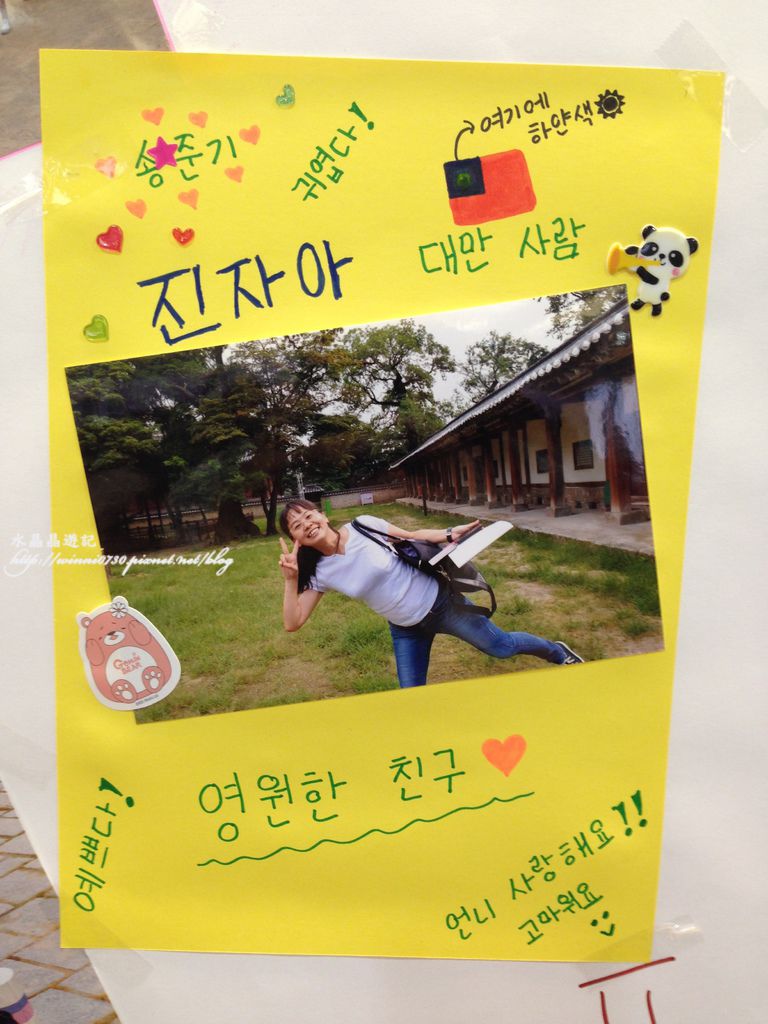 송준기
귀엽다!
여기에
하얀색
대만 사람
진자아
水晶晶遊記
http://winni0730.pixnet.net/blog
영원한 친구
예쁘다!
언니 사랑해요!!
고마워요